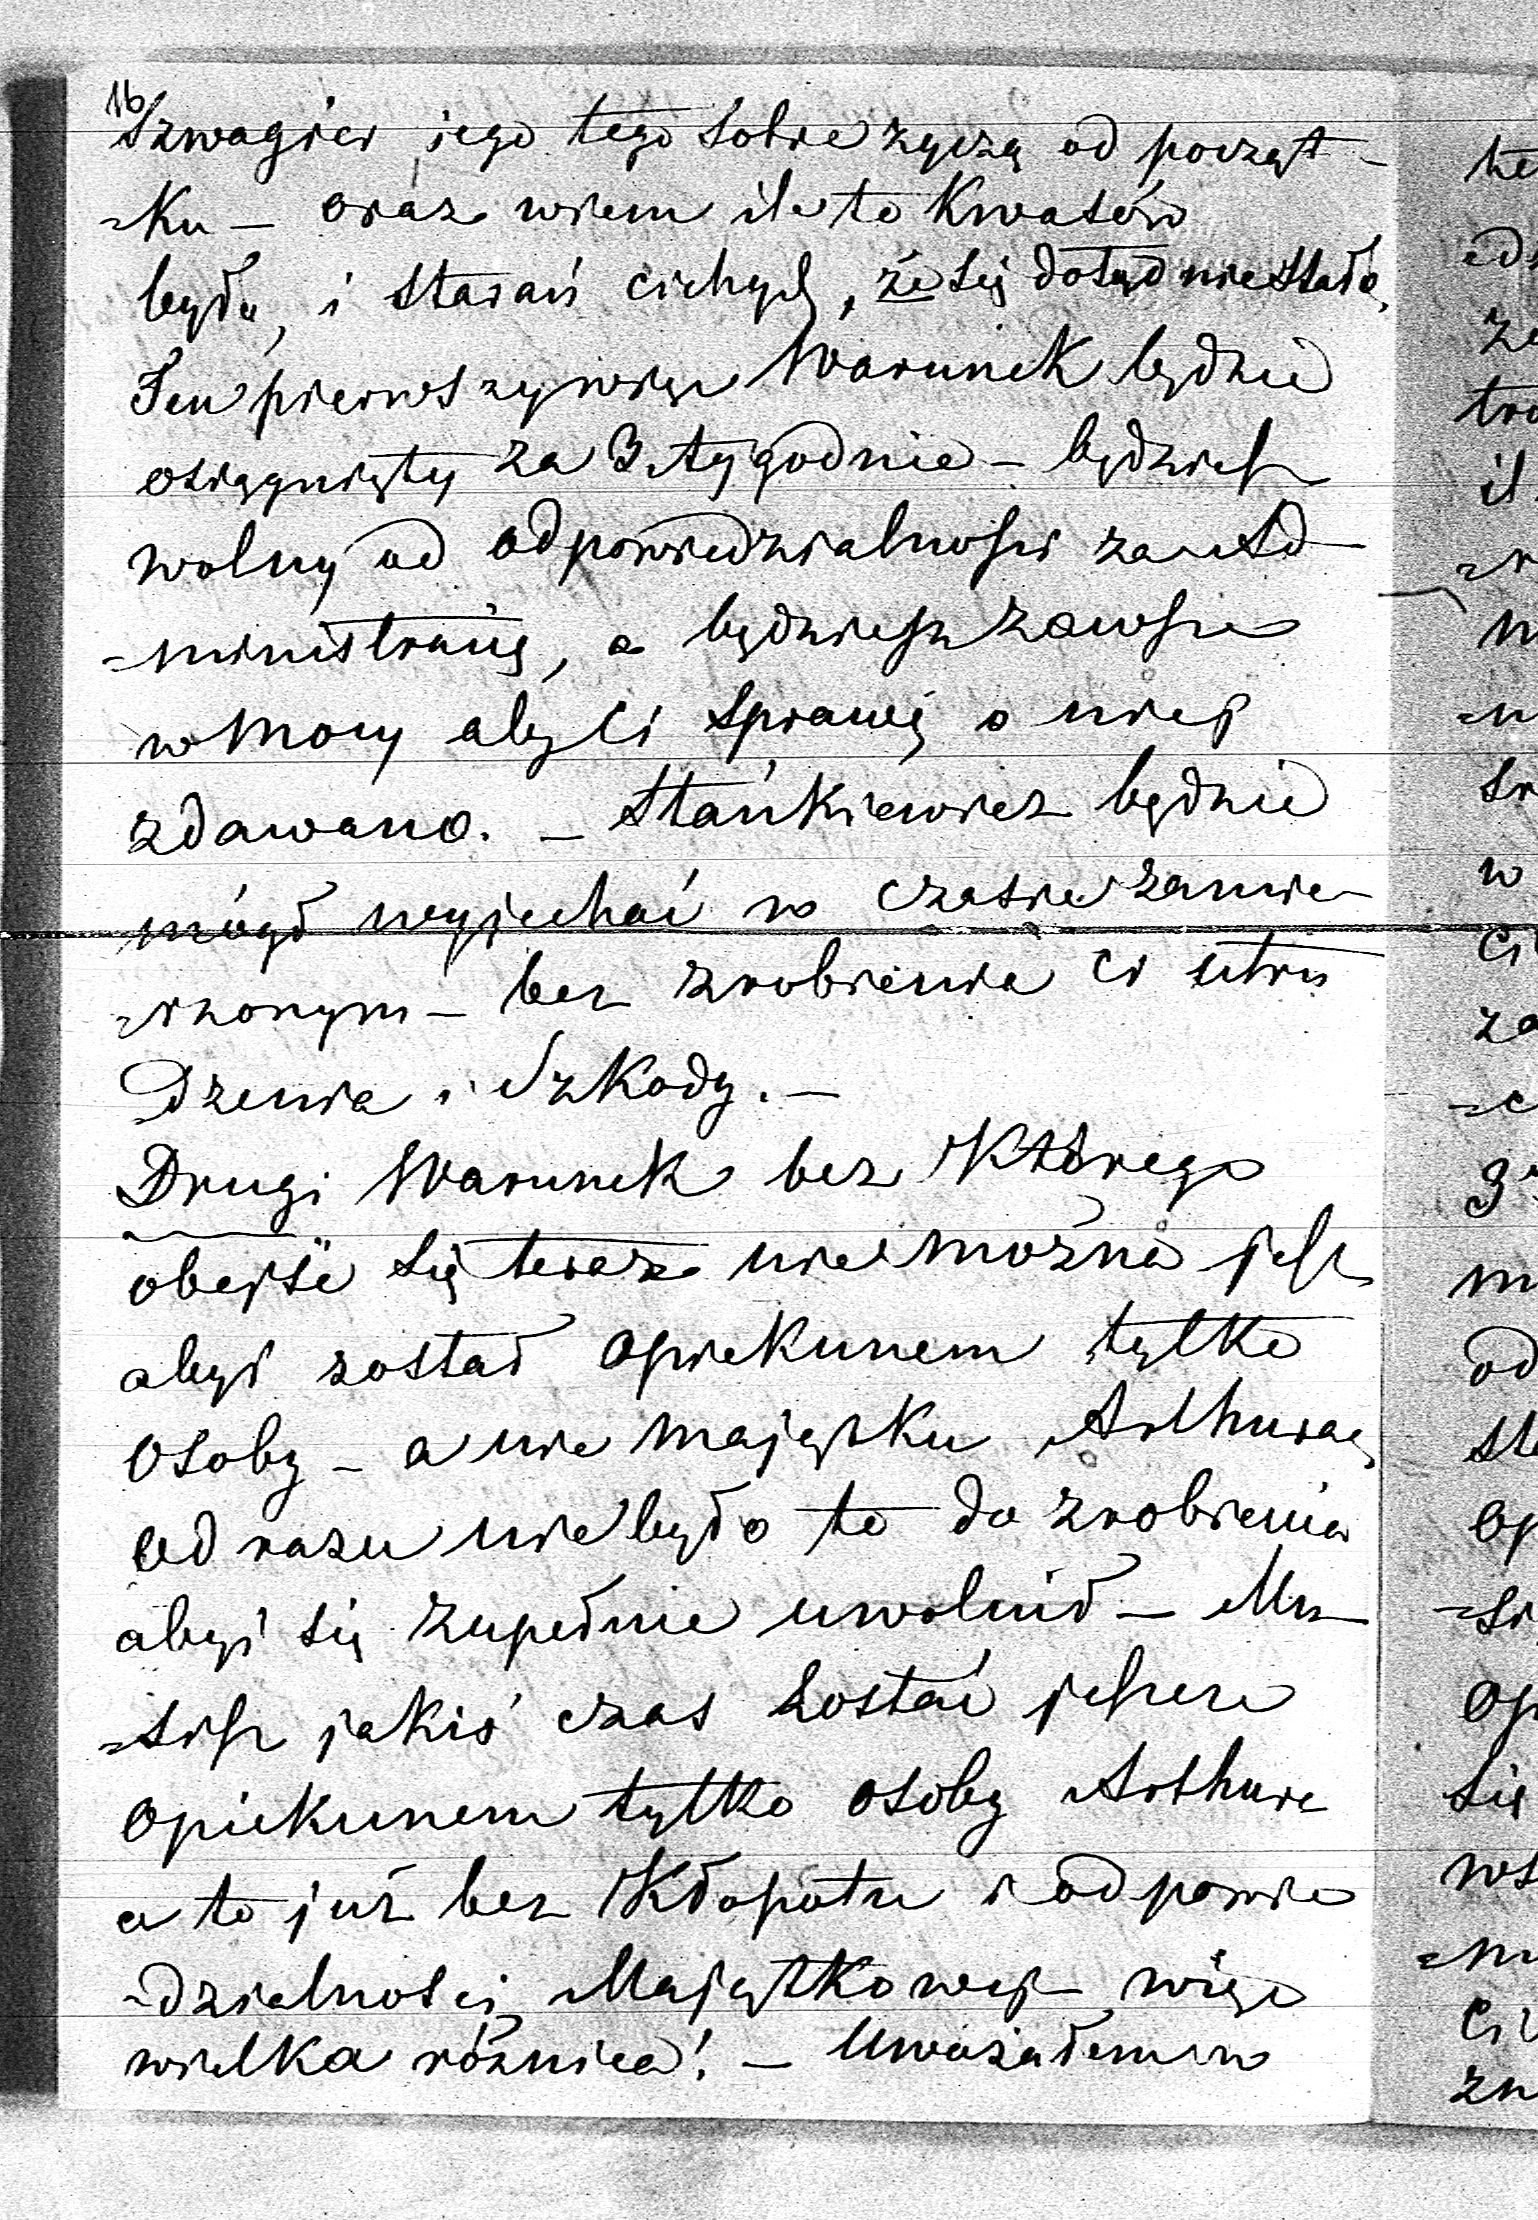 16
Szwagier jego tego sobie życzą od począt-
-ku – oraz wiem ile to kwasów
było, i starań cichych, że się dotąd nie stało.
Ten pierwszy więc Warunek będzie
osiągnięty za 3 tygodnie – będziesz
wolny od odpowiedzialności za Ad-
-ministracię, a będziesz zawsze
w Mocy aby Ci sprawę o niej
zdawano. – Stańkiewicz będzie
mógł wyjechać w czasie zamie-
-rzonym – bez zrobienia Ci utru
dzenia i Szkody. –
Drugi Warunek bez Którego
obejść się teraz nie można jest
abyś został opiekunem tylko
osoby – a nie majątku Arthura,
od razu nie było to do zrobienia
abyś się zupełnie uwolnił – Mu-
-sisz jakiś czas zostać jeszcze
opiekunem tylko osoby Arthura
a to już bez Kłopotu i odpowie
-dzialności Majątkowej więc
wielka różnica! – Uważałem w